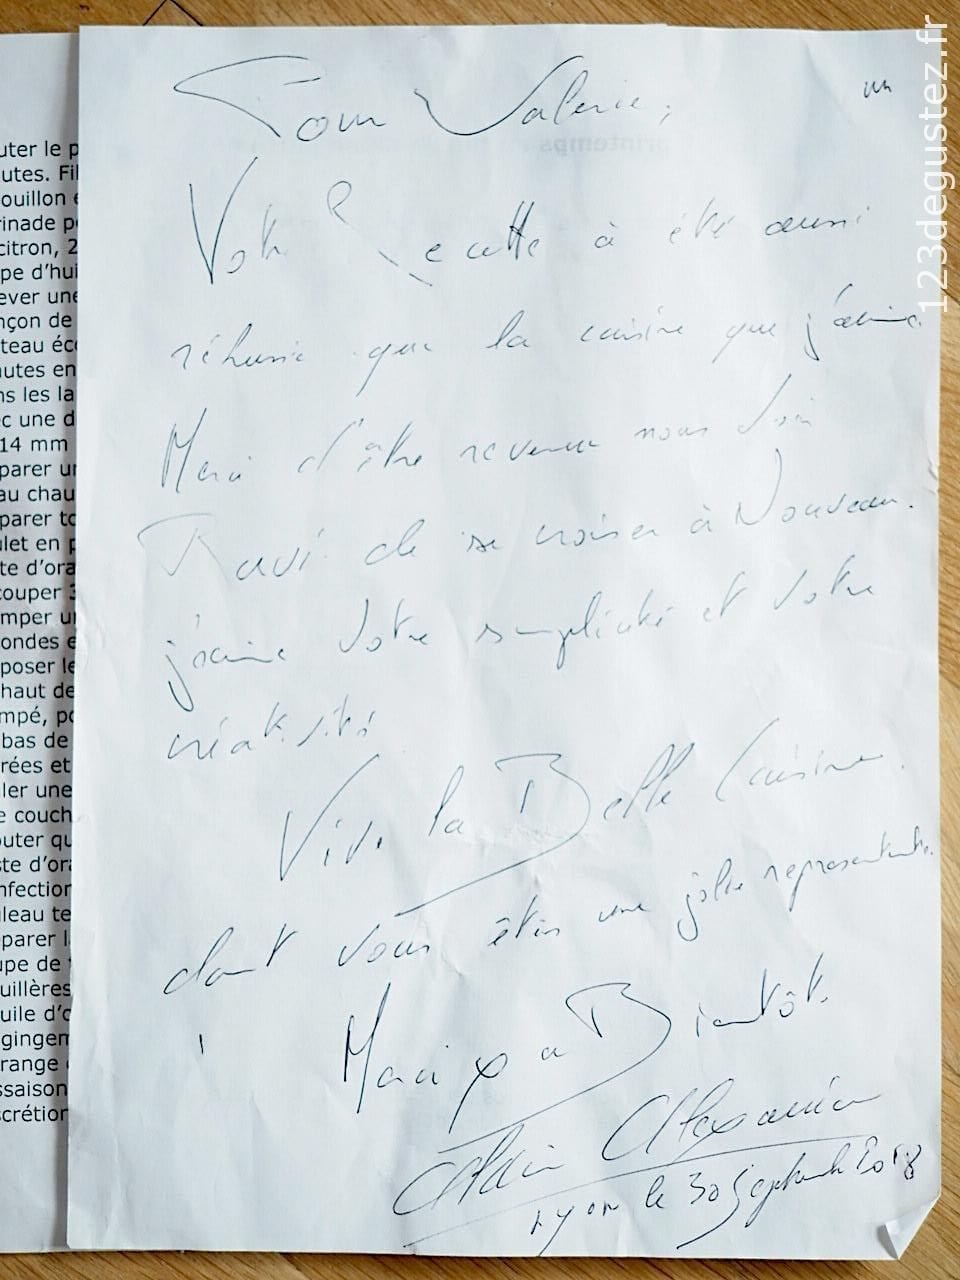 123degustez.fr
Pour Valerie,
Votre Recette à été aussi
réhussie que la cuisine que j'aime.
Merci d'être revenue nous voir
Ravi de se croiser à Nouveau.
j'aime votre simplicité et votre
créativité
Vive la Belle Cuisine.
dont vous êtes une jolie representante.
Merci a Bientôt.
Alain Alexanian
Lyon le 30 Septembre 2018
printemps
uter le p
utes. Fil
ouillon e
rinade p
citron, 2
pe d'hui
ever une
nçon de
teau éc
utes en
ns les la
c une d
14 mm
parer un
au chau
parer to
ulet en p
te d'ora
couper 3
mper un
ondes e
poser le
haut de
mpé, po
bas de
rées et
ler une
e couch
outer qu
ste d'ora
nfection
leau te
parer l
upe de
uillères
uile d'o
gingem
range
ssaison
scrétion